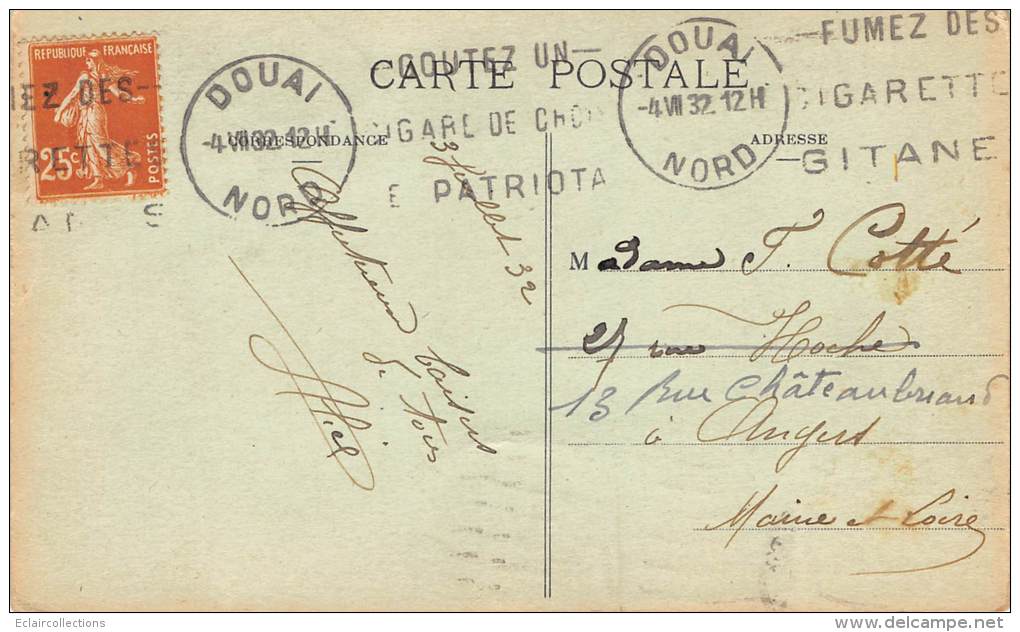 REPUBLIQUE FRANÇAISE
25c
POSTES
DOUAI
-4 VII 32 12H
NORD
GOUTEZ UN
CIGARE DE CHOI
E PATRIOTA
DOUAI
-4 VII 32 12H
NORD
FUMEZ DES
CIGARETTE
GITANE
MEZ DES
RETTE
CARTE POSTALE
CORRESPONDANCE
ADRESSE
3 Juillet 32
Affectueux baisers
à tois
Madame F. Cotté
27 rue Hoche
13 Rue Châteaubriand
à Angers
Maine et Loire
Eclaircollections
www.delcampe.net